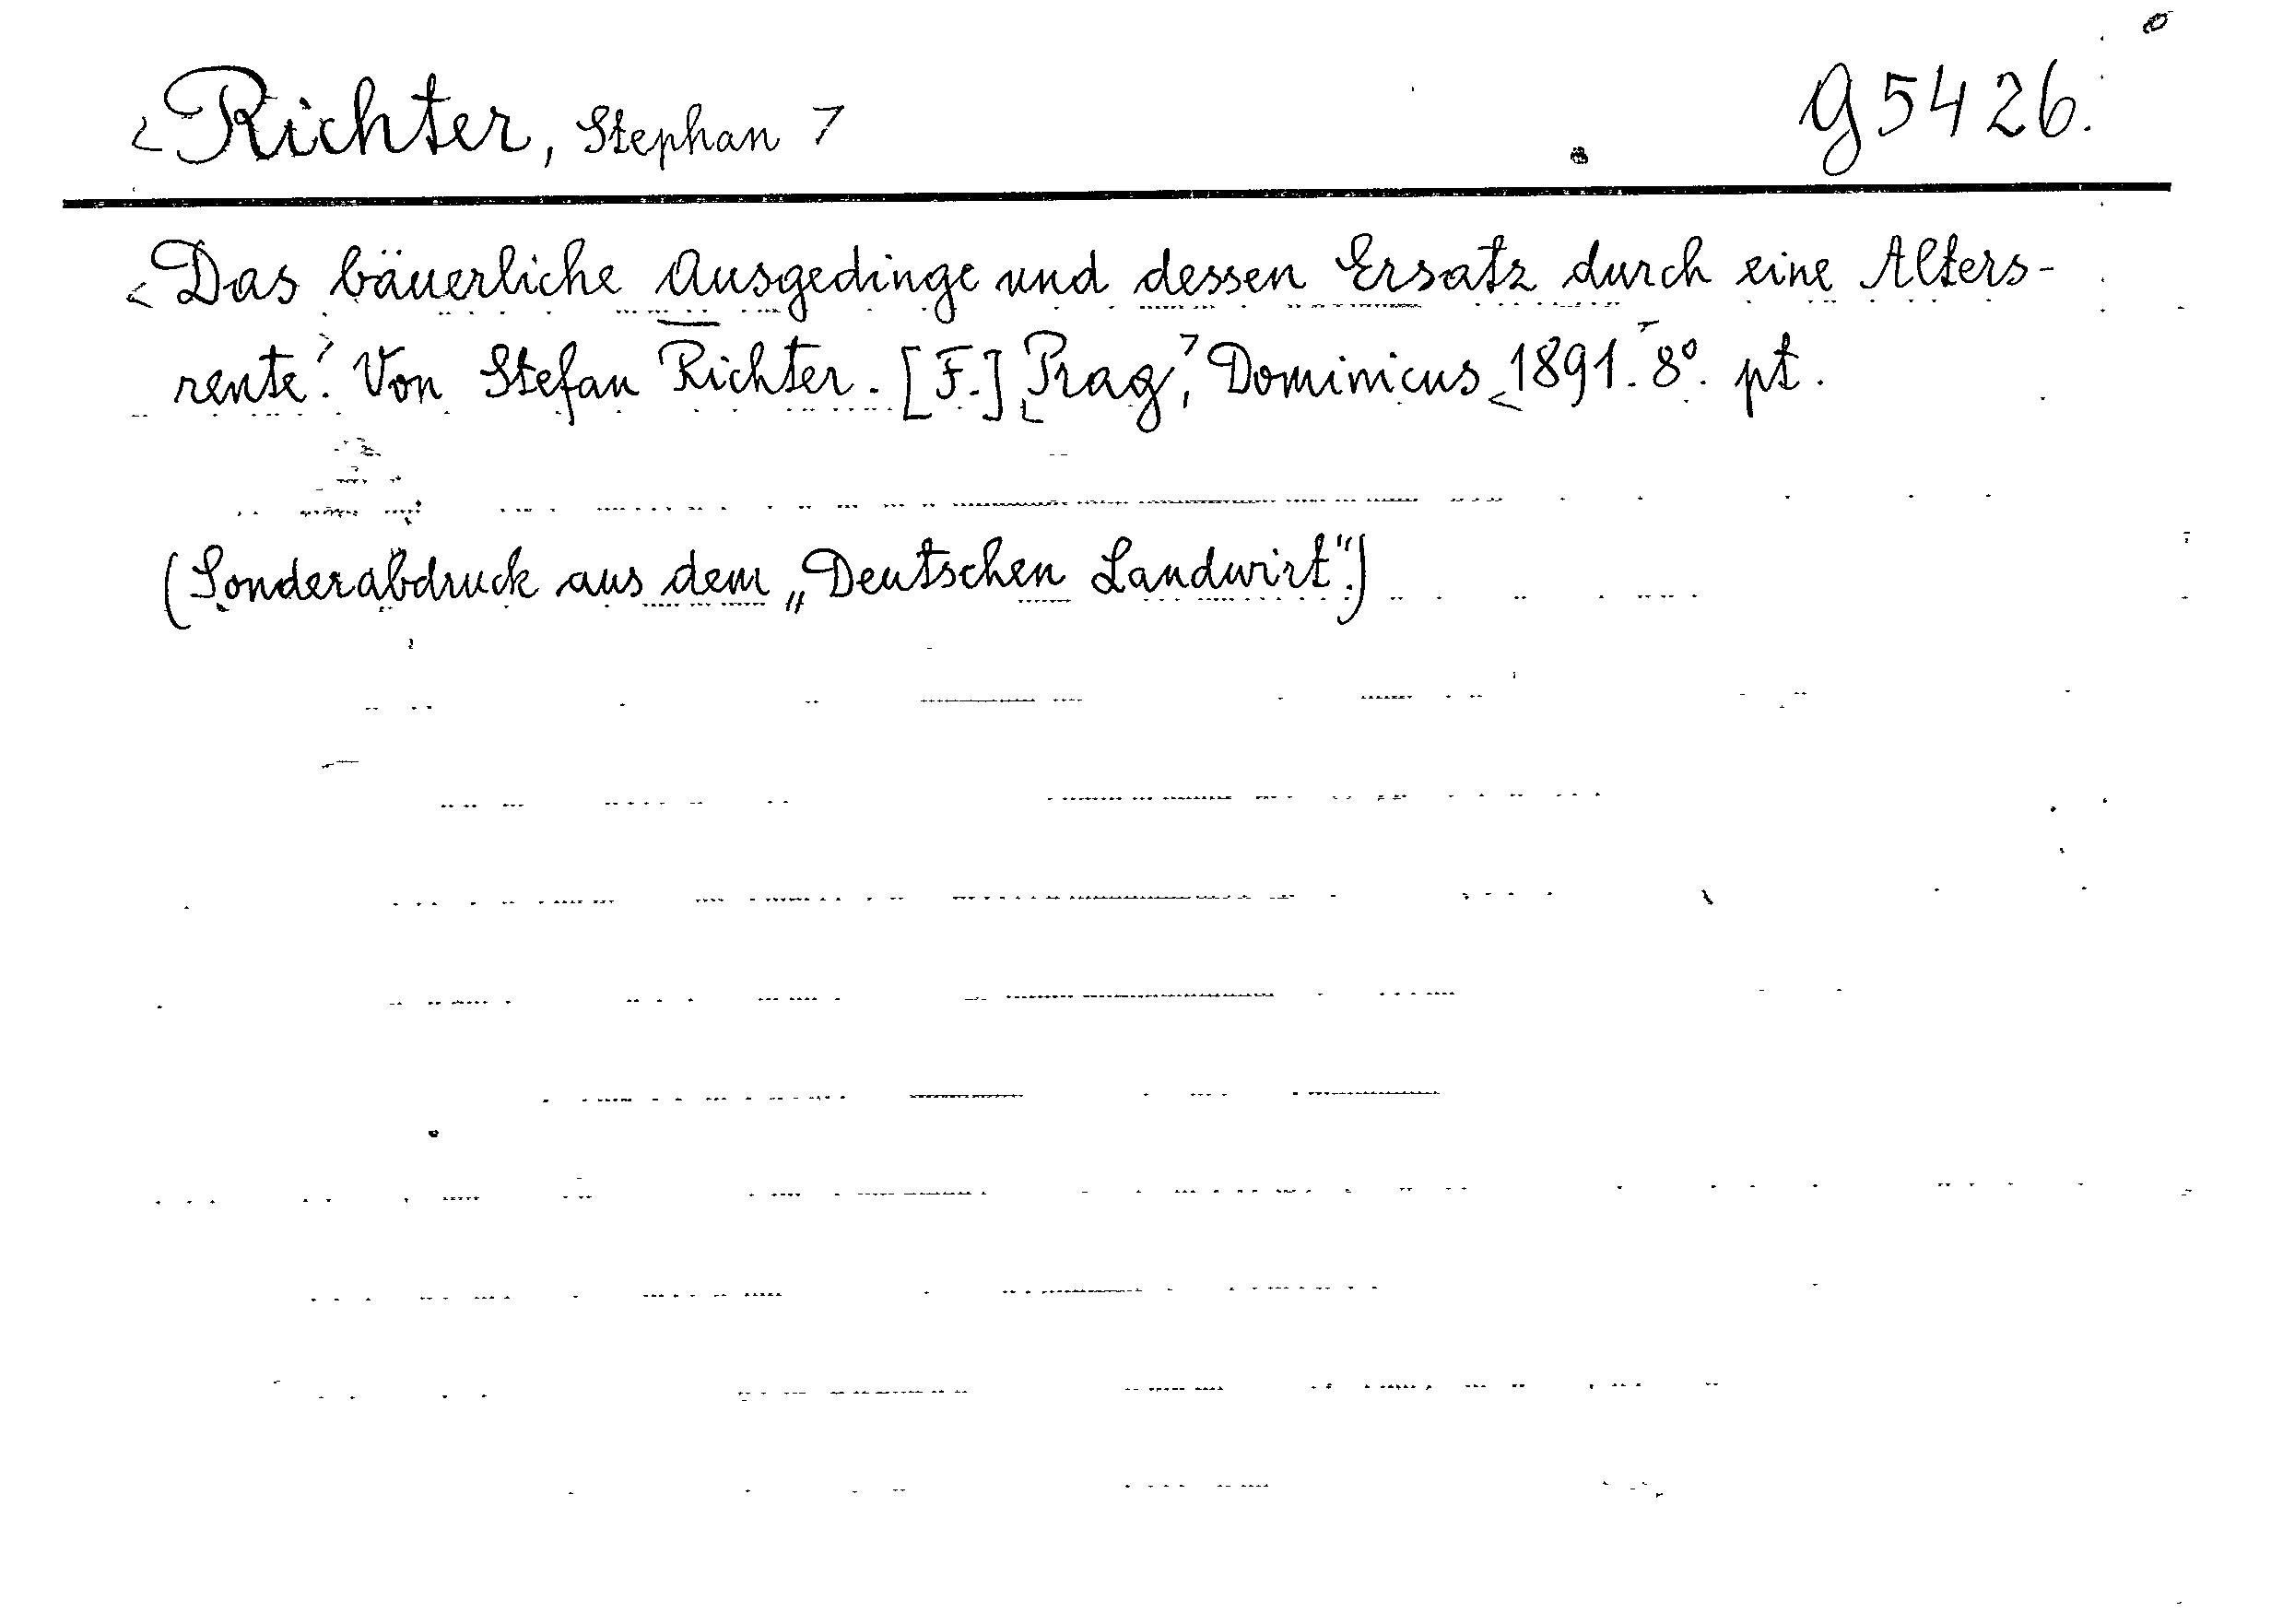 Richter, Stephan
g 5426.
Das bäuerliche Ausgedinge und dessen Ersatz durch eine Alters-
rente. Von Stefan Richter. [F.] Prag, Dominicus 1891. 8°. pt.
(Sonderabdruck aus dem „Deutschen Landwirt".)